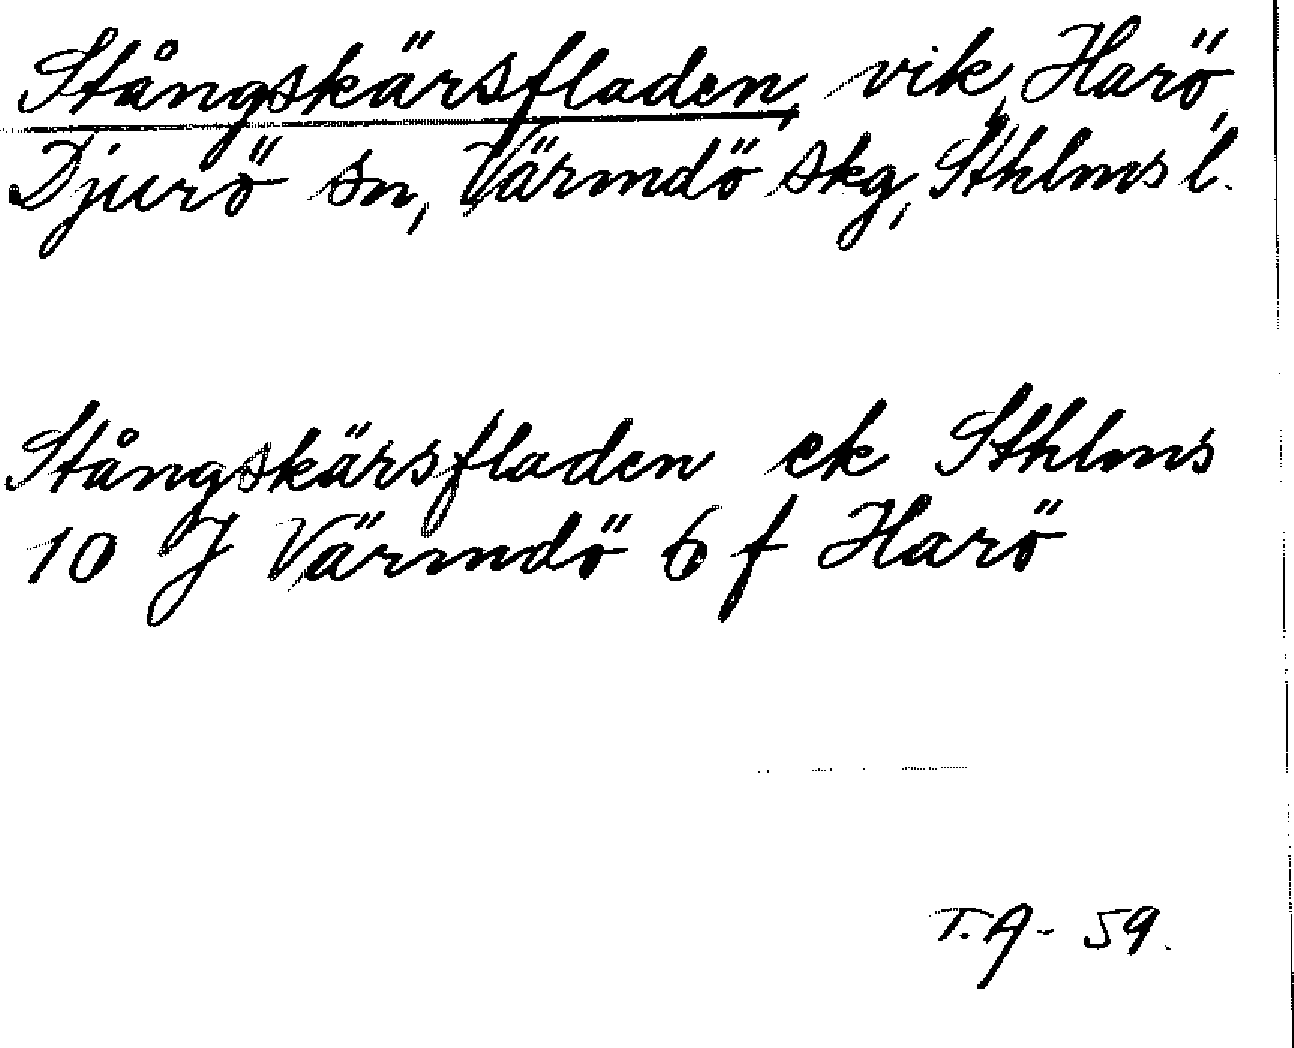 Stångskärsfladen, vik, Harö,
Djurö sn, Värmdö skg, Sthlms l.
Stångskärsfladen ek Sthlms
10 J Värmdö 6 f Harö
T.A- 59.